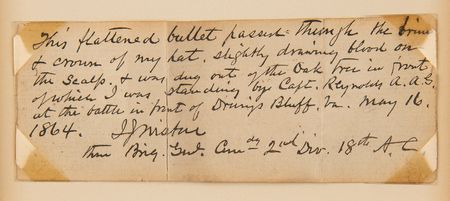 This flattened bullet passed through the brim
& crown of my hat, slightly drawing blood on
the scalp, & was dug out of the Oak tree in front
of which I was standing by Capt. Reynolds A.A.G.
at the battle in front of Drurys Bluff, Va. May 16.
1864. I J Wistar
then Brig. Genl. Comdg 2nd Div. 18th A.C.